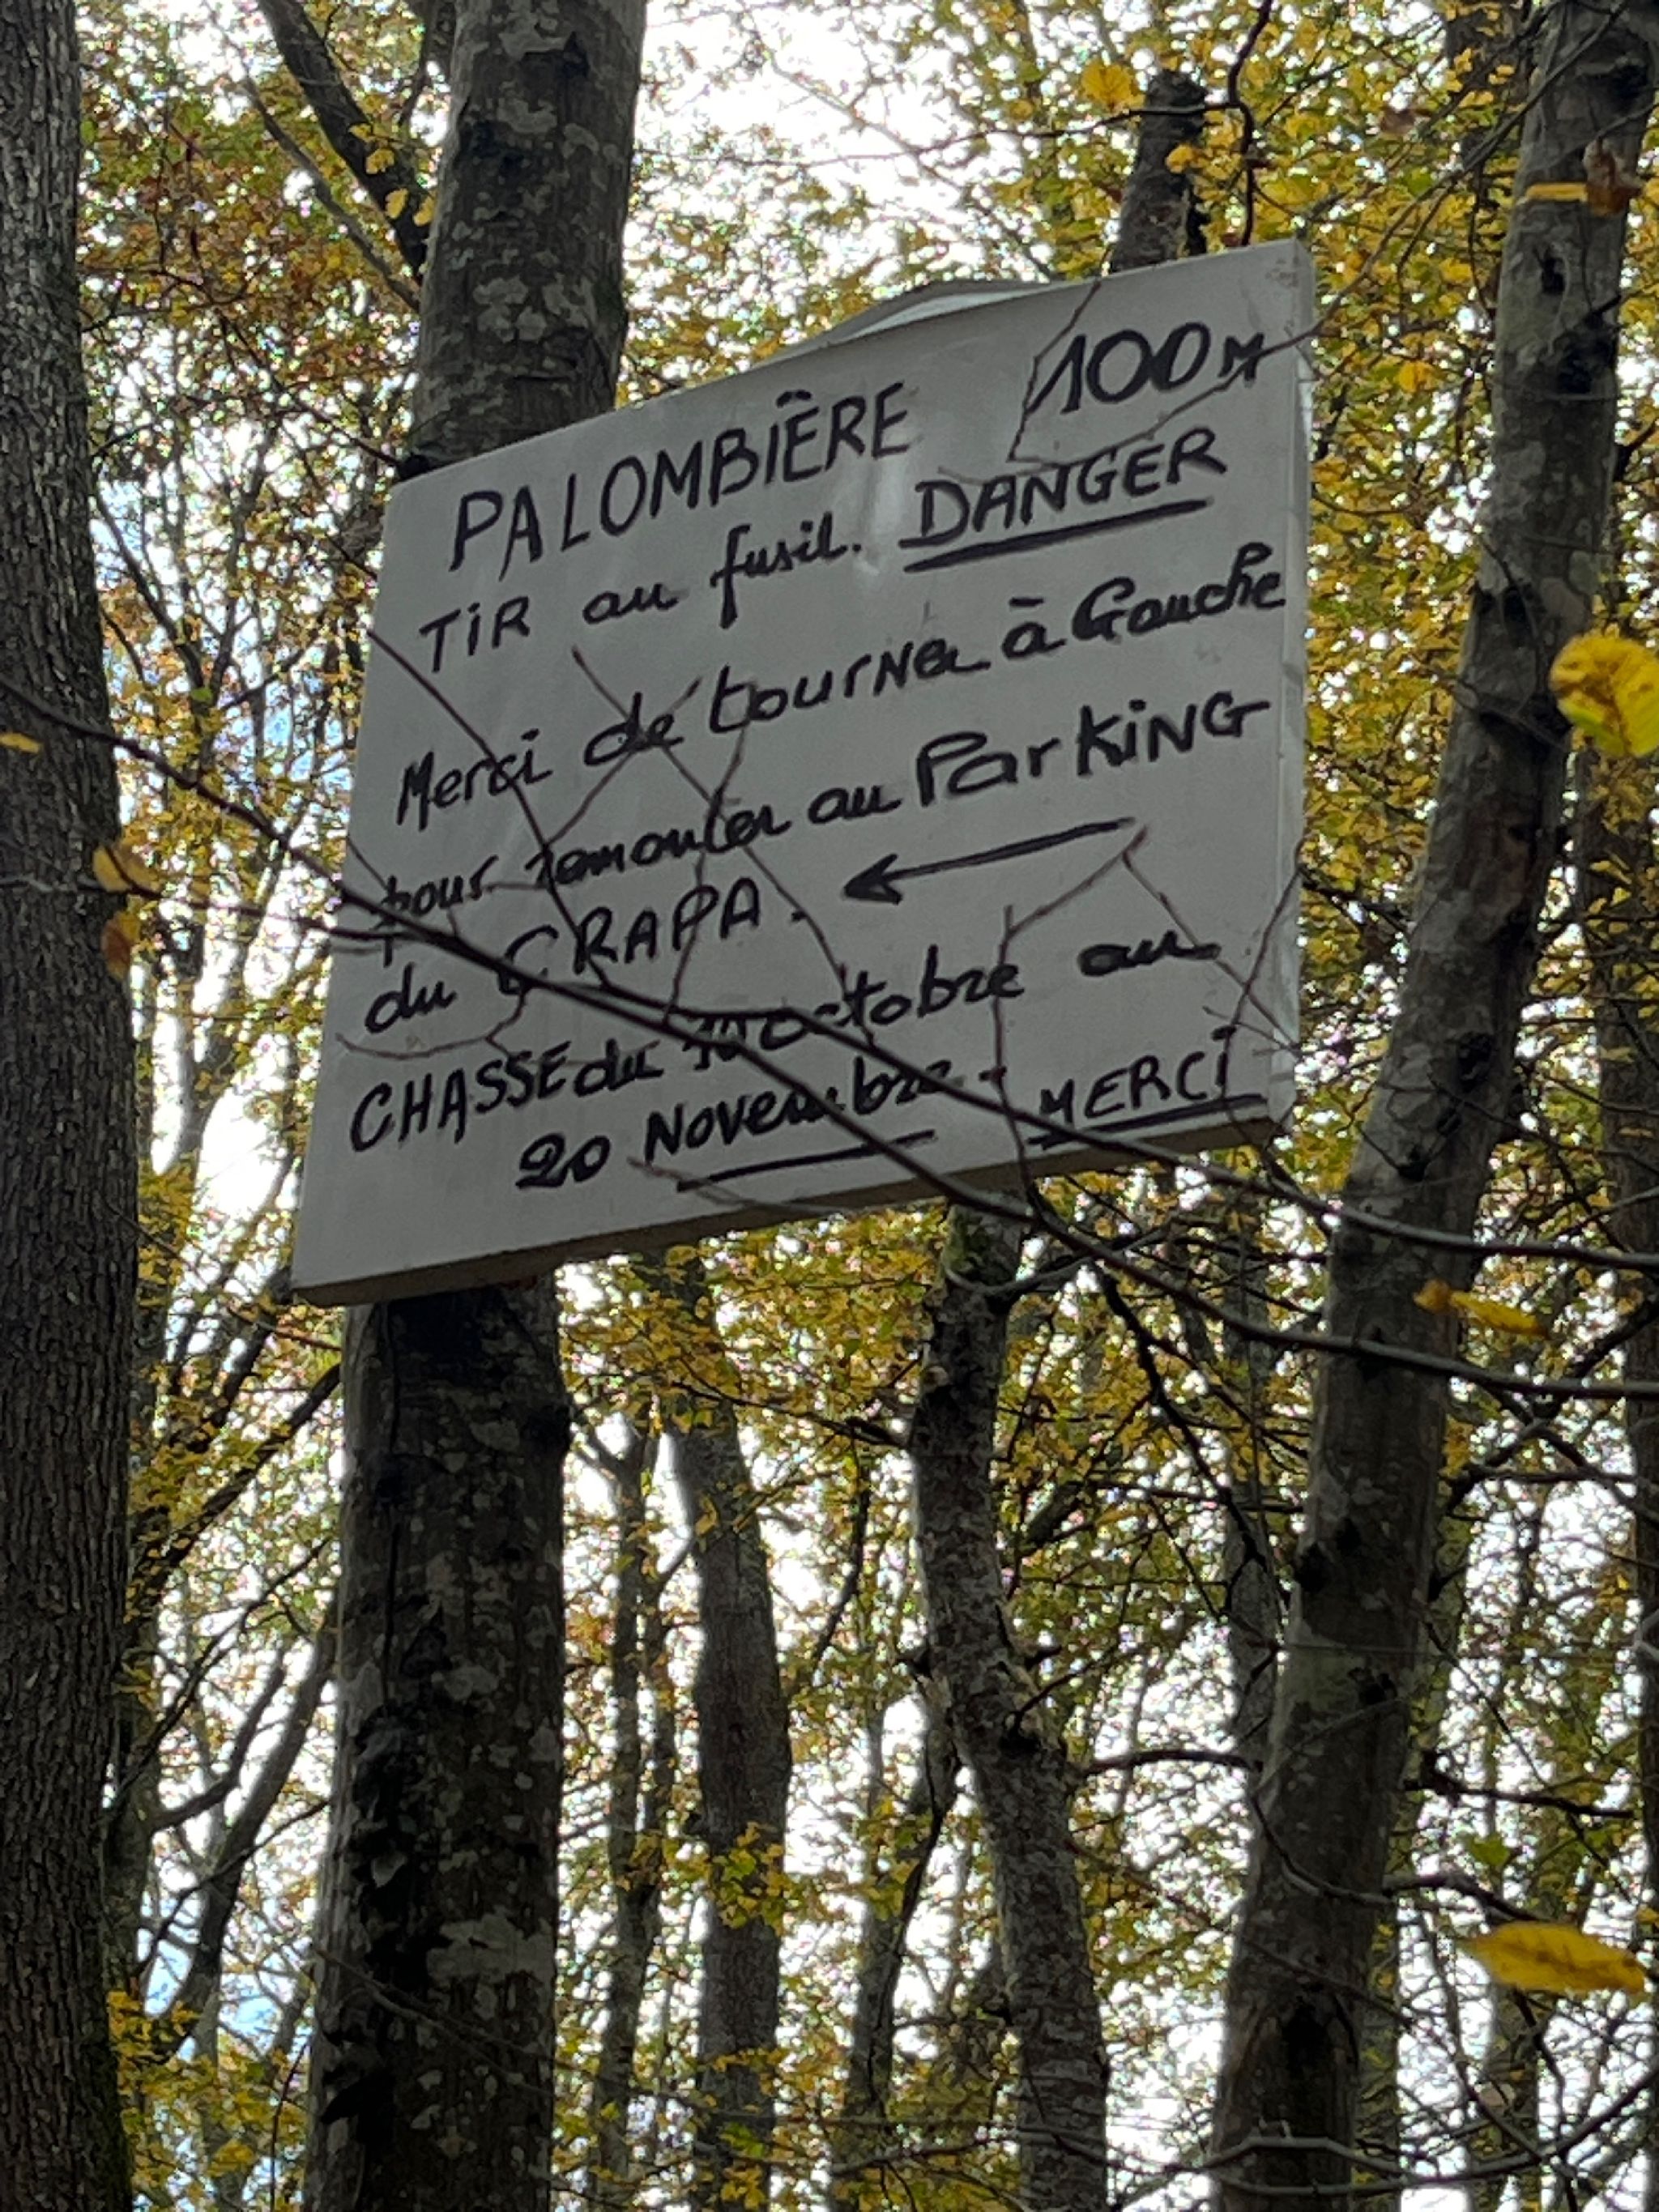 PALOMBIÈRE 100M
TIR au fusil. DANGER
Merci de tourner à Gauche
pour remonter au ParKING
du CRAPA.
CHASSE du 10 octobre au
20 Novembre. MERCI